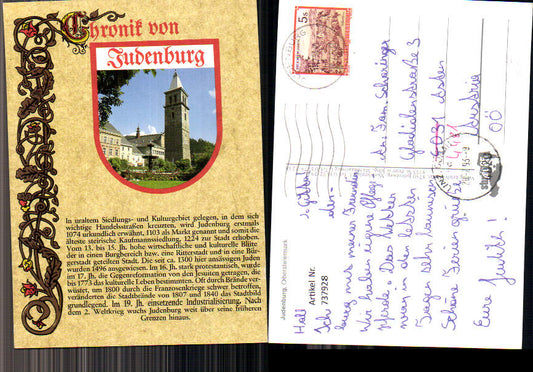 Chronik von
Judenburg
In uraltem Siedlungs- und Kulturgebiet gelegen, in dem sich
wichtige Handelsstraßen kreuzten, wird Judenburg erstmals
1074 urkundlich erwähnt, 1103 als Markt genannt und somit die
älteste steirische Kaufmannssiedlung, 1224 zur Stadt erhoben.
Vom 13. bis 15. Jh. hohe wirtschaftliche und kulturelle Blüte,
der in einen Burgbereich bzw. eine Ritterstadt und in eine Bür-
gerstadt geteilten Stadt. Die seit ca. 1300 hier ansässigen Juden
wurden 1496 ausgewiesen. Im 16. Jh. stark protestantisch, wurde
im 17. Jh. die Gegenreformation von den Jesuiten getragen, die
bis 1773 das kulturelle Leben bestimmten. Oft durch Brände ver-
wüstet, um 1800 durch die Franzosenkriege schwer betroffen,
veränderten die Stadtbrände von 1807 und 1840 das Stadtbild
grundlegend. Im 19. Jh. einsetzende Industrialisierung. Nach
dem 2. Weltkrieg wuchs Judenburg weit über seine früheren
Grenzen hinaus.
5s
Judenburg, Obersteiermark
Artikel Nr.
737928
Hall
Ich
mit meiner Freundin
Wir haben eigene Pfleg-
Pferde. Das Wetter
war in den letzten
Tagen sehr
Schöne Ferien Grüße
Eure Judith!
An Fam.
Gladiolenstraße 3
4481 Asten
Austria
OÖ